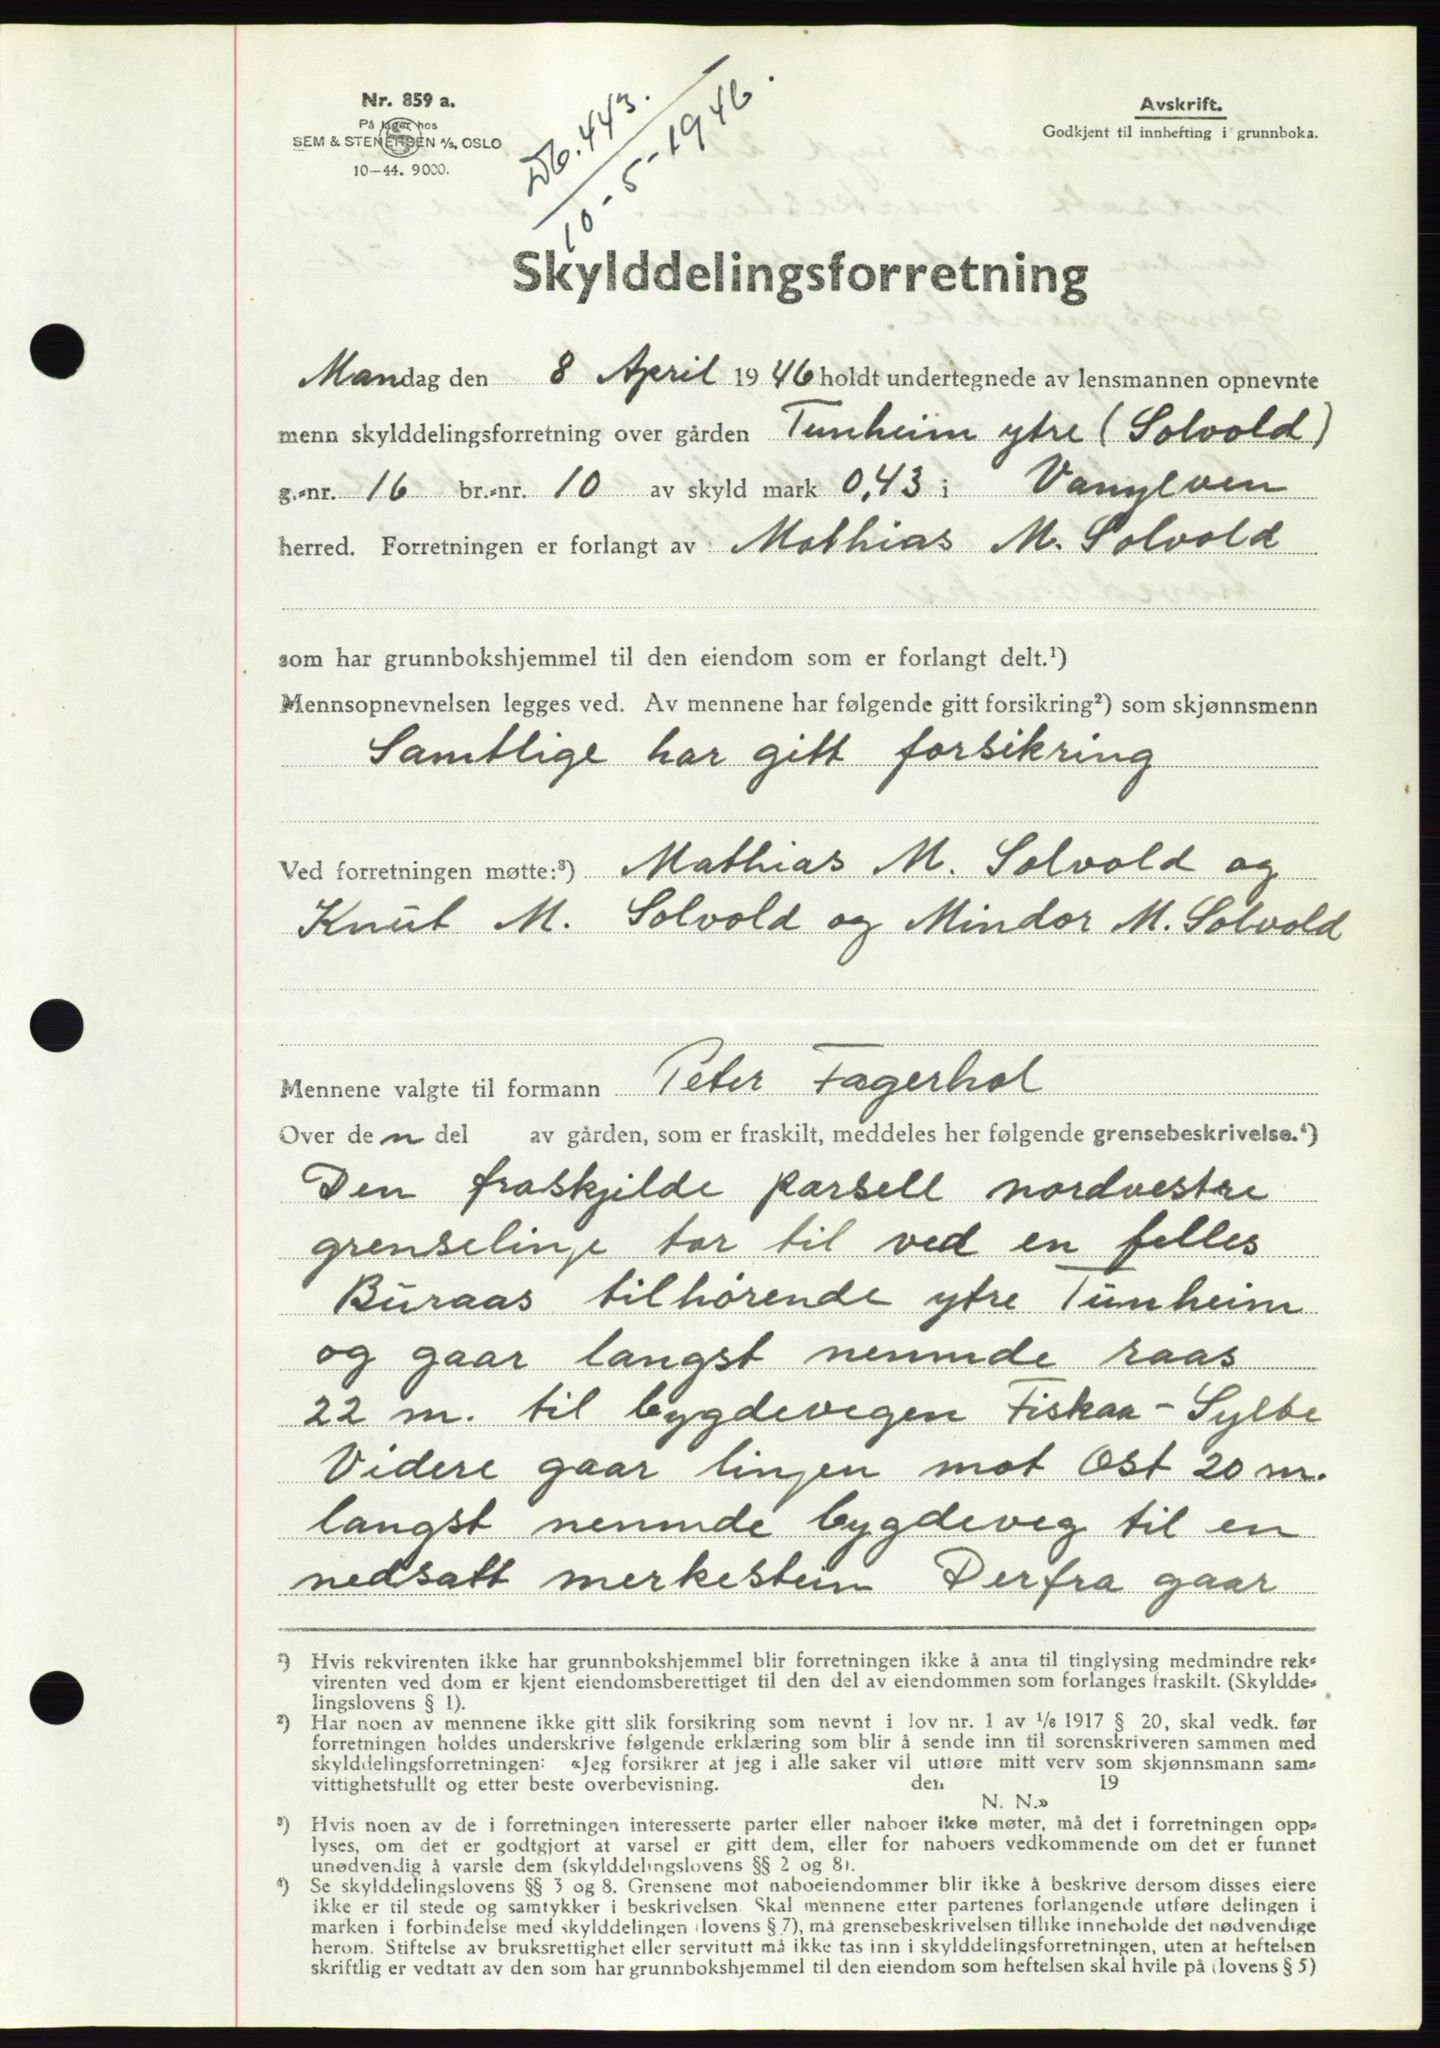 Nr. 859 a.
På lager hos
SEM & STENERSEN A/S, OSLO
10—44. 9000.
Db. 443.
10-5-1946.
Avskrift.
Godkjent til innhefting i grunnboka.
Skylddelingsforretning
Mandag den 8 April 1946 holdt undertegnede av lensmannen opnevnte
menn skylddelingsforretning over gården Tunheim ytre (Solvold)
g.-nr. 16 br.-nr. 10 av skyld mark 0,43 i Vanylven
herred. Forretningen er forlangt av Mathias M. Solvold
som har grunnbokshjemmel til den eiendom som er forlangt delt.¹)
Mennsopnevnelsen legges ved. Av mennene har følgende gitt forsikring²) som skjønnsmenn
Samtlige har gitt forsikring
Ved forretningen møtte:³) Mathias M. Solvold og
Knut M. Solvold og Mindor M. Solvold
Mennene valgte til formann Peter Fagerhol
Over den del av gården, som er fraskilt, meddeles her følgende grensebeskrivelse.⁴)
Den fraskjilde parsell nordvestre
grenselinje tar til ved en felles
Buraas tilhørende ytre Tunheim
og gaar langst nemnde raas
22 m. til bygdevegen Fiskaa - Sylte
Videre gaar linjen mot Øst 20 m.
langst nemnde bygdeveg til en
nedsatt merkestein Derfra gaar
¹) Hvis rekvirenten ikke har grunnbokshjemmel blir forretningen ikke å anta til tinglysing medmindre rek-
virenten ved dom er kjent eiendomsberettiget til den del av eiendommen som forlanges fraskilt. (Skyldde-
lingslovens § 1).
²) Har noen av mennene ikke gitt slik forsikring som nevnt i lov nr. 1 av 1/6 1917 § 20, skal vedk. før
forretningen holdes underskrive følgende erklæring som blir å sende inn til sorenskriveren sammen med
skylddelingsforretningen: «Jeg forsikrer at jeg i alle saker vil utføre mitt verv som skjønnsmann sam-
vittighetsfullt og etter beste overbevisning. den 19
N. N.»
³) Hvis noen av de i forretningen interesserte parter eller naboer ikke møter, må det i forretningen opp-
lyses, om det er godtgjort at varsel er gitt dem, eller for naboers vedkommende om det er funnet
unødvendig å varsle dem (skylddelingslovens §§ 2 og 8).
⁴) Se skylddelingslovens §§ 3 og 8. Grensene mot naboeiendommer blir ikke å beskrive dersom disses eiere
ikke er til stede og samtykker i beskrivelsen. Skal mennene etter partenes forlangende utføre delingen i
marken i forbindelse med skylddelingen (lovens § 7), må grensebeskrivelsen tillike inneholde det nødvendige
herom. Stiftelse av bruksrettighet eller servitutt må ikke tas inn i skylddelingsforretningen, uten at heftelsen
skriftlig er vedtatt av den som har grunnbokshjemmel til den eiendom som heftelsen skal hvile på (lovens § 5)